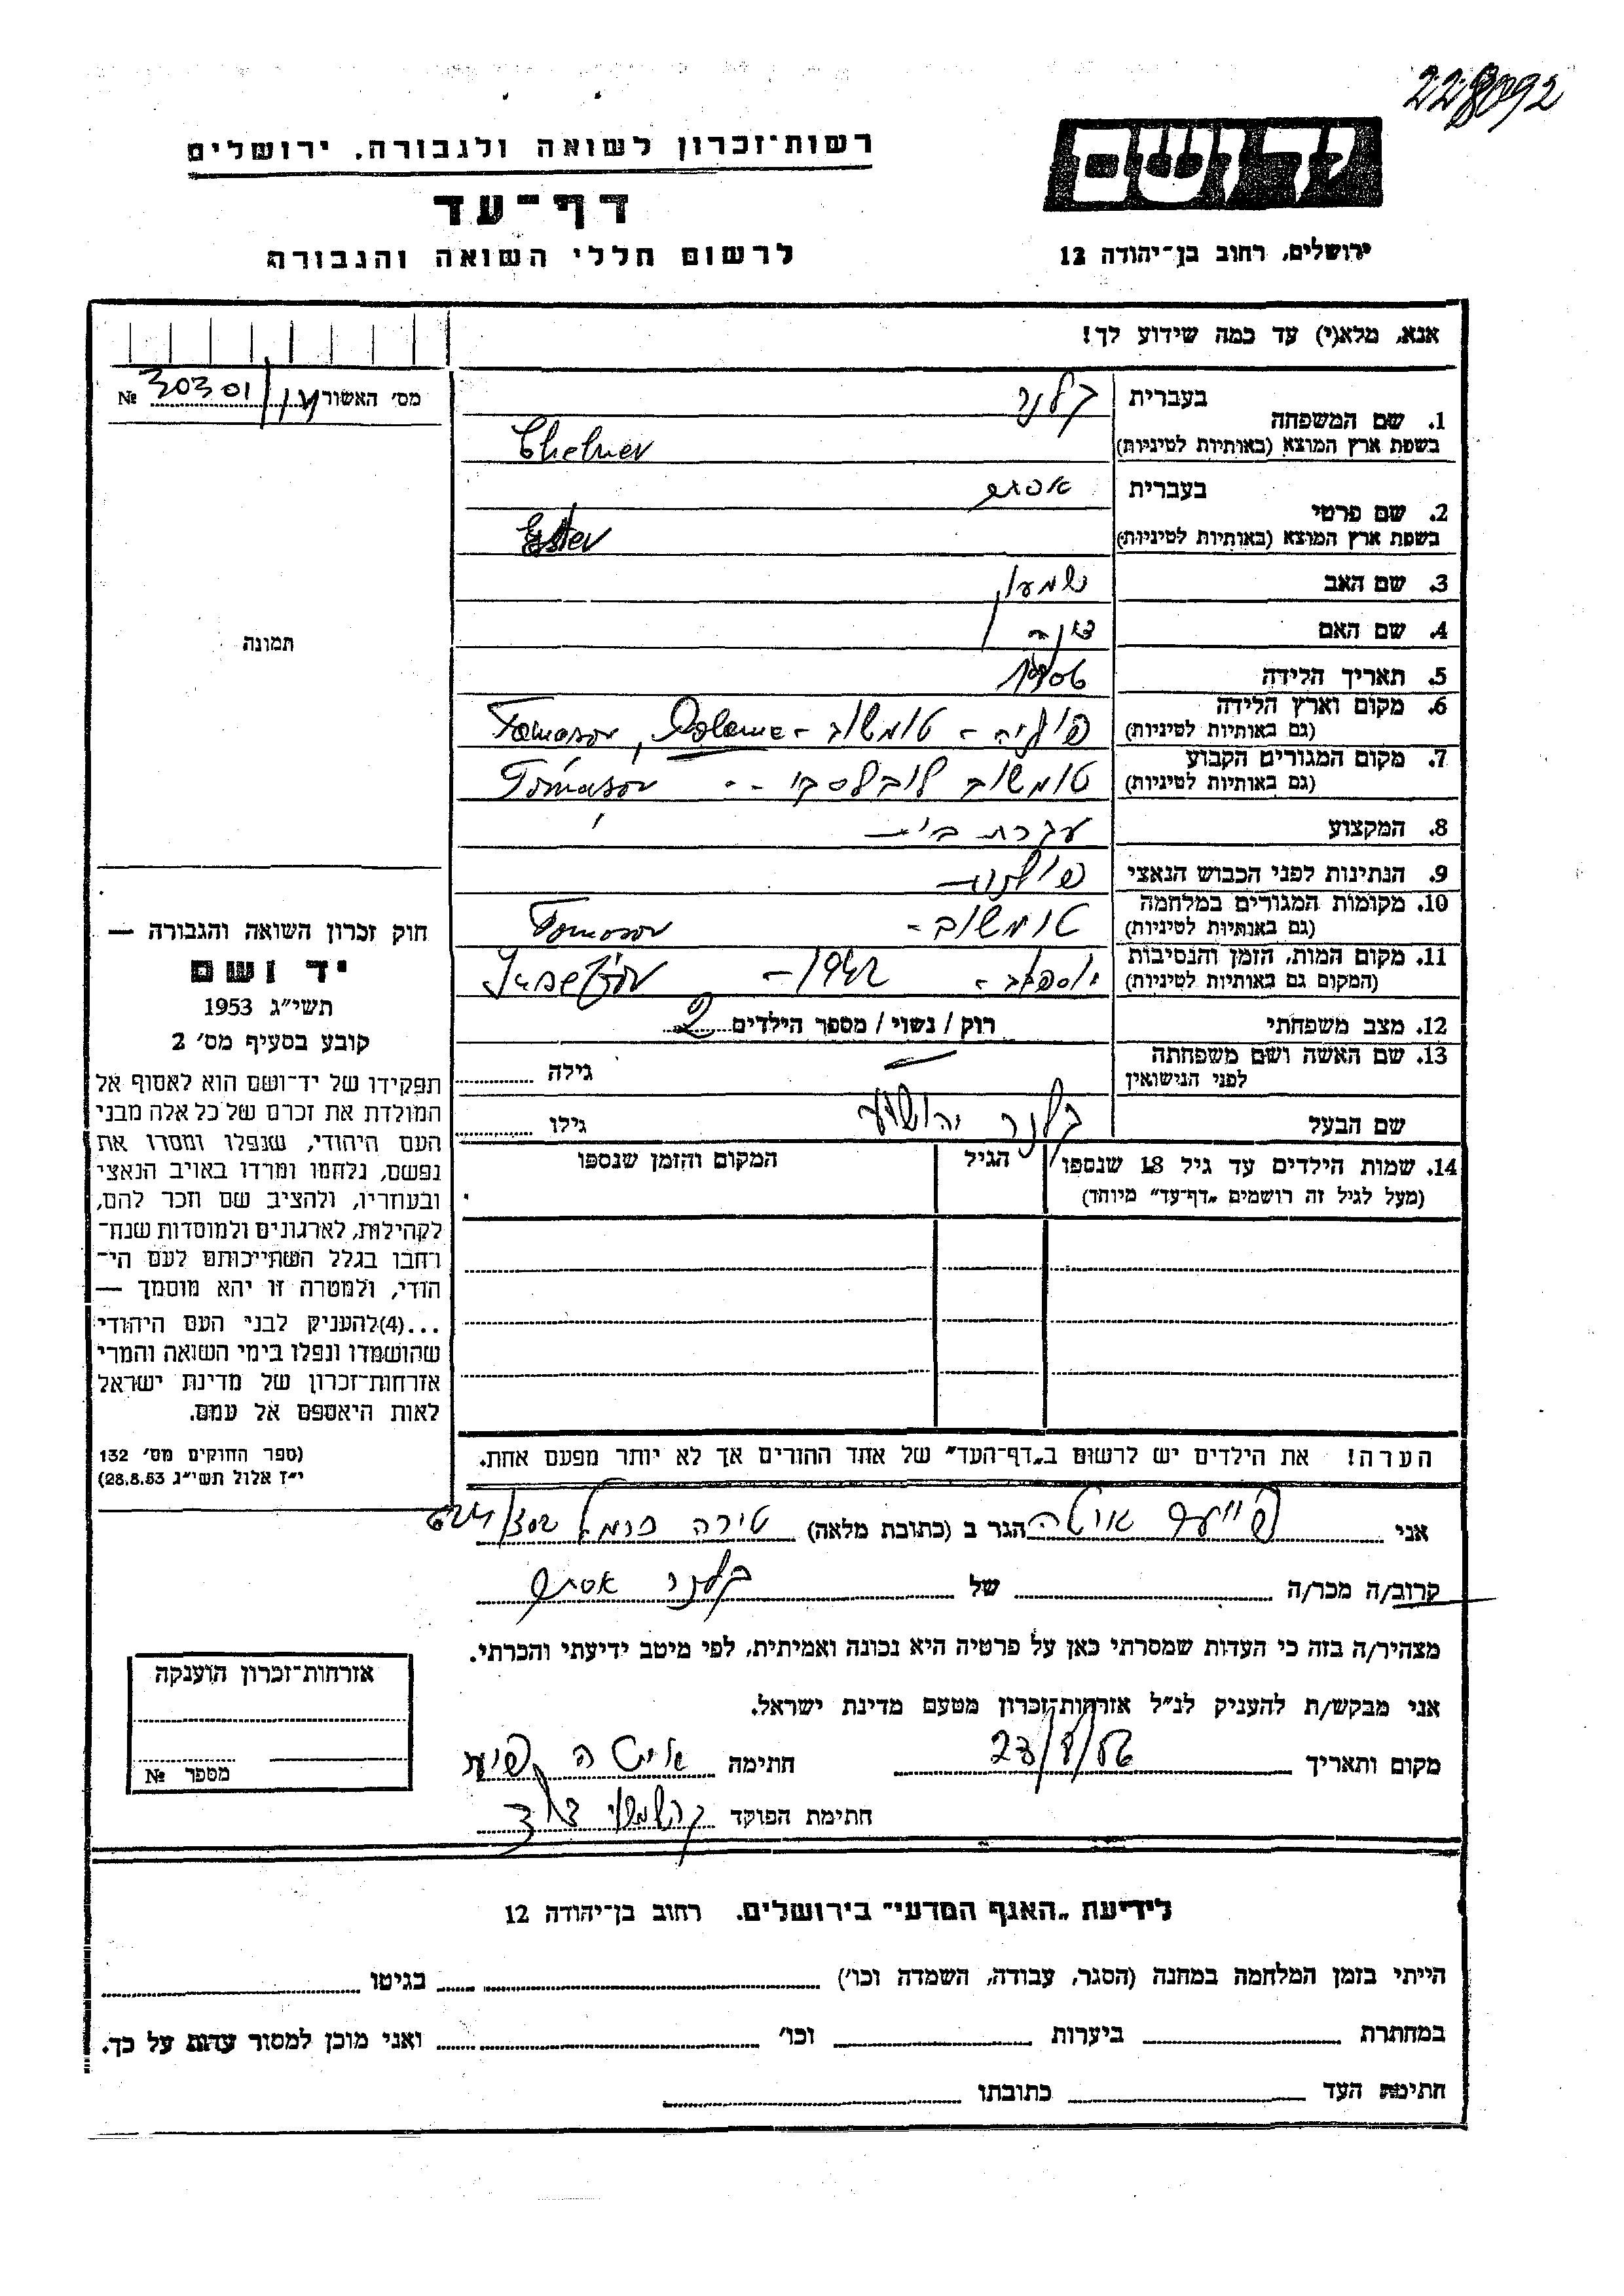 228092
רשות־זכרון לשואה ולגבורה. ירושלים
דף־עד
לרשום חללי השואה והגבורה
יד ושם
ירושלים, רחוב בן־יהודה 12
אנא, מלא(י) עד כמה שידוע לך!
מס׳ האשור 30301 №
1. שם המשפחה
בעברית קלנר
בשפת ארץ המוצא (באותיות לטיניות) Chelner
2. שם פרטי
בעברית אסתר
בשפת ארץ המוצא (באותיות לטיניות) Ester
3. שם האב שמעון
4. שם האם
5. תאריך הלידה
6. מקום וארץ הלידה
(גם באותיות לטיניות) פולניה - טומשוב - Tomasov,
7. מקום המגורים הקבוע
(גם באותיות לטיניות) טומשוב לובלסקי -- Tomasov
8. המקצוע עקרת בית
9. הנתינות לפני הכבוש הנאצי פולנית
10. מקומות המגורים במלחמה
(גם באותיות לטיניות) טומשוב - Tomosov
11. מקום המות, הזמן והנסיבות
(המקום גם באותיות לטיניות) 1942 -
12. מצב משפחתי רוק / נשוי / מספר הילדים 2
13. שם האשה ושם משפחתה
לפני הנישואין גילה
שם הבעל קלנר יהושע גילו
14. שמות הילדים עד גיל 18 שנספו הגיל המקום והזמן שנספו
(מעל לגיל זה רושמים „דף־עד״ מיוחד)
הערה! את הילדים יש לרשום ב„דף־העד״ של אחד ההורים אך לא יותר מפעם אחת.
תמונה
חוק זכרון השואה והגבורה —
יד ושם
תשי״ג 1953
קובע בסעיף מס׳ 2
תפקידו של יד־ושם הוא לאסוף אל
המולדת את זכרם של כל אלה מבני
העם היהודי, שנפלו ומסרו את
נפשם, נלחמו ומרדו באויב הנאצי
ובעוזריו, ולהציב שם וזכר להם,
לקהילות, לארגונים ולמוסדות שנח־
רחבו בגלל השתייכותם לעם הי־
הודי, ולמטרה זו יהא מוסמך —
...(4)להעניק לבני העם היהודי
שהושמדו ונפלו בימי השואה והמרי
אזרחות־זכרון של מדינת ישראל
לאות היאספם אל עמם.
(ספר החוקים מס׳ 132
י״ז אלול תשי״ג 28.8.53)
אני הגר ב (כתובת מלאה) טירה כרמל
קרוב/ה מכר/ה של קלנר אסתר
מצהיר/ה בזה כי העדות שמסרתי כאן על פרטיה היא נכונה ואמיתית, לפי מיטב ידיעתי והכרתי.
אני מבקש/ת להעניק לנ״ל אזרחות־זכרון מטעם מדינת ישראל.
מקום ותאריך חתימה
חתימת הפוקד
אזרחות־זכרון הוענקה
מספר №
לידיעת „האגף המדעי״ בירושלים. רחוב בן־יהודה 12
הייתי בזמן המלחמה במחנה (הסגר, עבודה, השמדה וכו׳) בגיטו
במחתרת ביערות וכו׳ ואני מוכן למסור עדות על כך.
חתימת העד כתובתו